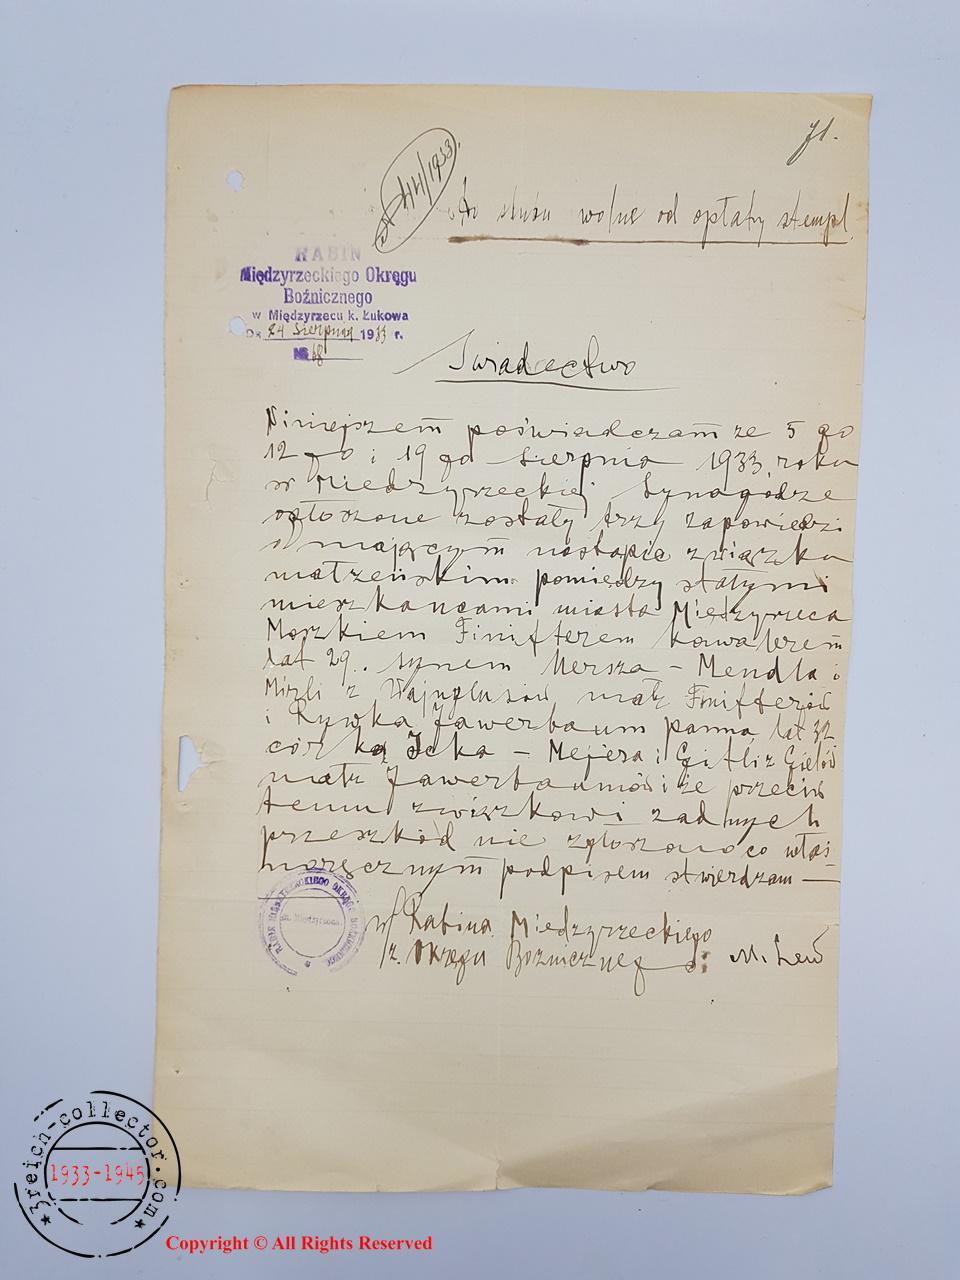 71.
N 44/1933.
do ślubu wolne od opłaty stempl.
RABIN
Międzyrzeckiego Okręgu
Bożnicznego
w Międzyrzecu k. Łukowa
Dn. 24 Sierpnia 1933 r.
№ 68
Swiadectwo
Niniejszem poświadczam ze 5 go
12 go i 19 go Sierpnia 1933 roku
w Miedzyrzeckiej Synagodze
ogłoszone zostały trzy zapowiedzi
o mającym nastąpic związku
małzeńskim pomiędzy stałymi
mieszkancami miasta Międzyrzeca
Moszkiem Finifterem kawalerem
lat 29. synem Hersza - Mendla i
Mirli z małz Finifterów
i Rywką Jawerbaum panną lat 32
córką Icka - Mejera i Gitli z
małz Jawerbaumów i ze przeciw
temu związkowi zadnych
przeszkód nie zgłoszono co włas
noręcznym podpisem stwierdzam —
RABIN MIĘDZYRZECKIEGO OKRĘGU BOŻNICZNEGO
m. Międzyrzec
w/z. Rabina Miedzyrzeckiego
Okręgu Boznicznego: M. Lew
3reich-collector.com
1933-1945
Copyright © All Rights Reserved